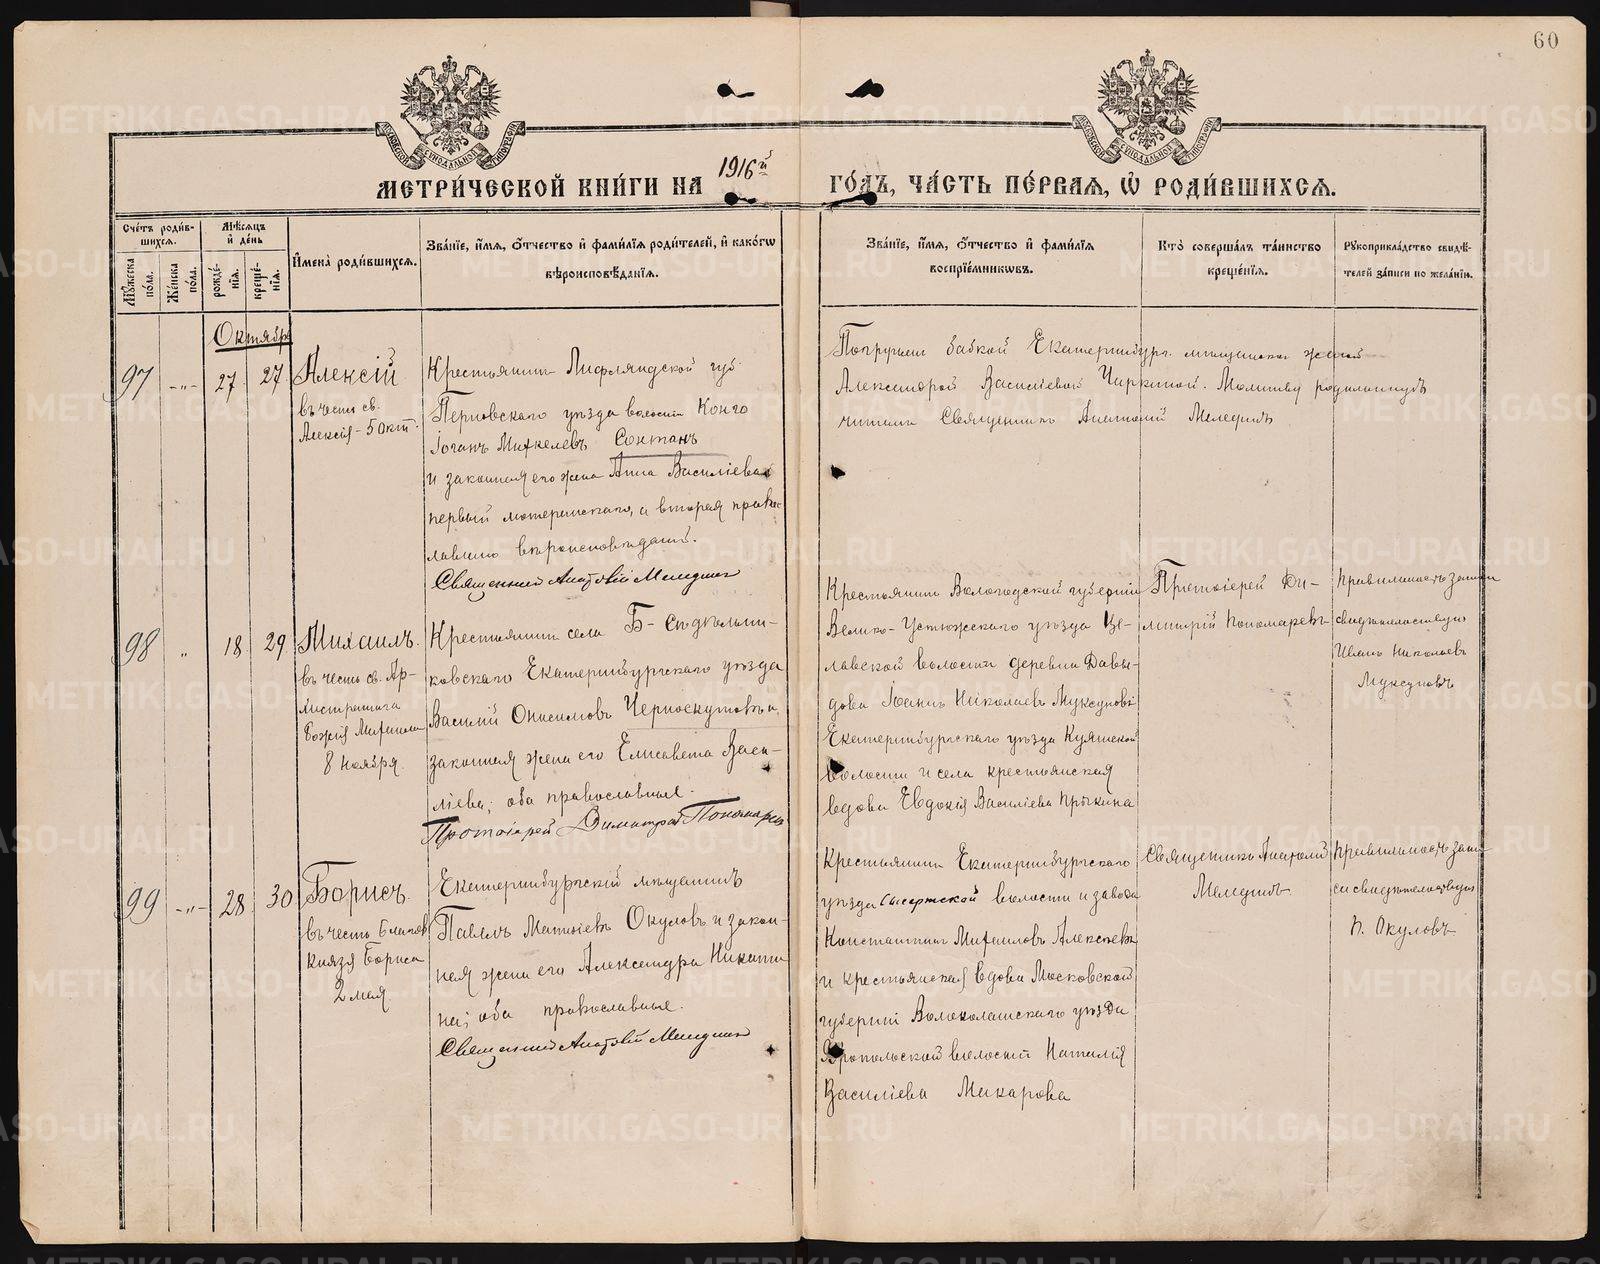 60
МЕТРИ́ЧЕСКОЙ КНИ́ГИ НА 1916й ГО́ДЪ, ЧА́СТЬ ПЕ́РВАЯ, Ѡ РОДИ́ВШИХСЯ.
Сче́тъ роди́вшихся.
Му́жеска по́ла.
Же́нска по́ла.
Мѣ́сяцъ и де́нь
рожде́нія.
креще́нія.
Имена̀ роди́вшихся.
Зва́ніе, и́мя, о́тчество и фами́лія роди́телей, и како́гѡ
вѣроисповѣ́данія.
Зва́ніе, и́мя, о́тчество и фами́лія
воспріе́мникѡвъ.
Кто̀ соверша́лъ та́инство
креще́нія.
Рукоприкла́дство свидѣ́-
телей за́писи по жела́нію.
Октябрь
97 -„- 27 27
Алексій
въ честь св.
Алексія - 5 окт.
Крестьянинъ Лифляндской губ.
Перновскаго уѣзда волости Конго
Іоганъ Михкелевъ Сонтанъ
и законная его жена Анна Василіева
первый лютеранскаго, а вторая право-
славнаго вѣроисповѣданій.
Священникъ Анатолій Меледин
Погруженъ бабкой Екатеринбург. мѣщанской женой
Александрой Василіевой Чиркиной. Молитву родильницѣ
читалъ Священникъ Анатолій Мелединъ
98 „ 18 29
Михаилъ
въ честь св. Ар-
хистратига
Божія Михаила
8 ноября
Крестьянинъ села Б-
ковскаго Екатеринбургскаго уѣзда
Василій Онисимовъ Черноскутовъ и
законная жена его Елисавета Васи-
ліева; оба православные.
Протоіерей Димитрій Пономаревъ
Крестьянинъ Вологодской губерніи
Велико-Устюжского уѣзда
лавской волости деревни Давы-
дова Іоаннъ Николаевъ Муксуновъ
Екатеринбургскаго уѣзда Куяшской
волости и села крестьянская
вдова Евдокія Василіева
Протоіерей Ди-
митрій Пономаревъ
Правильность записи
свидѣтельствую
Иванъ Николаевъ
Муксуновъ
99 -„- 28 30
Борисъ
въ честь благов
князя Бориса
2 мая
Екатеринбургскій мѣщанинъ
Павелъ Матвіевъ Окуловъ и закон-
ная жена его Александра Никити-
на; оба православные.
Священникъ Анатолій Меледин
Крестьянинъ Екатеринбургскаго
уѣзда Сысертской волости и завода
Константинъ Михаиловъ Алексѣевъ
и крестьянская вдова Московской
губерніи Волоколамскаго уѣзда
волости Наталія
Василіева Макарова
Священникъ Анатолій
Мелединъ
Правильность запи
си свидѣтельствую
П. Окуловъ